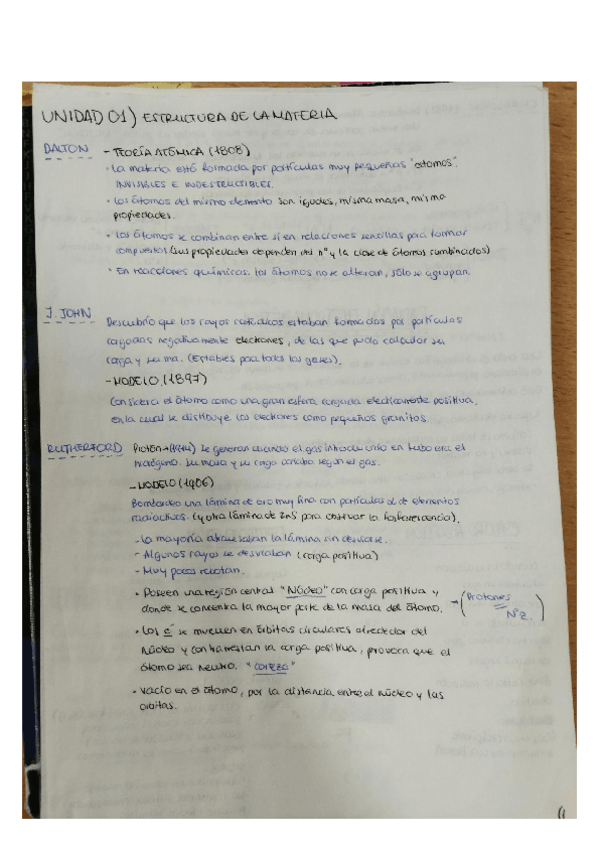 UNIDAD 01) ESTRUCTURA DE LA MATERIA
DALTON - TEORÍA ATÓMICA (1808)
· La materia está formada por partículas muy pequeñas "átomos".
INVISIBLES E INDESTRUCTIBLES.
· Los átomos del mismo elemento son iguales, misma masa, mismo
propiedades.
· Los átomos se combinan entre sí en relaciones sencillas para formar
compuestos (sus propiedades dependen del nº y la clase de átomos combinados)
· En reacciones químicas. Los átomos no se alteran, sólo se agrupan.
J. JOHN
Descubrió que los rayos catódicos estaban formados por partículas
cargadas negativamente electrones, de las que pudo calcular su
carga y su ma. (Estables para todos los gases).
- MODELO (1897)
Considera el átomo como una gran esfera cargada electricamente positiva,
en la cual se distribuye los electrones como pequeños granitos.
RUTHERFORD Protón → (1914) Se generan cuando el gas introducido en tubo era el
hidrógeno. Su masa y su carga variaba según el gas.
- MODELO (1906)
Bombardeo una lámina de oro muy fina con partículas α de elementos
radioactivos. (y otra lámina de ZnS para observar la fosforescencia).
- La mayoría atravesaban la lámina sin desviarse.
- Algunos rayos se desviaban (carga positiva)
- Muy pocos rebotan.
· Poseen una región central "Núcleo" con carga positiva y
donde se concentra la mayor parte de la masa del átomo. → (Protones
Nº Z.)
· Los e⁻ se mueven en órbitas circulares alrededor del
núcleo y contrarrestan la carga positiva, provoca que el
átomo sea neutro. "corteza"
· vacío en el átomo, por la distancia entre el núcleo y las
orbitas.